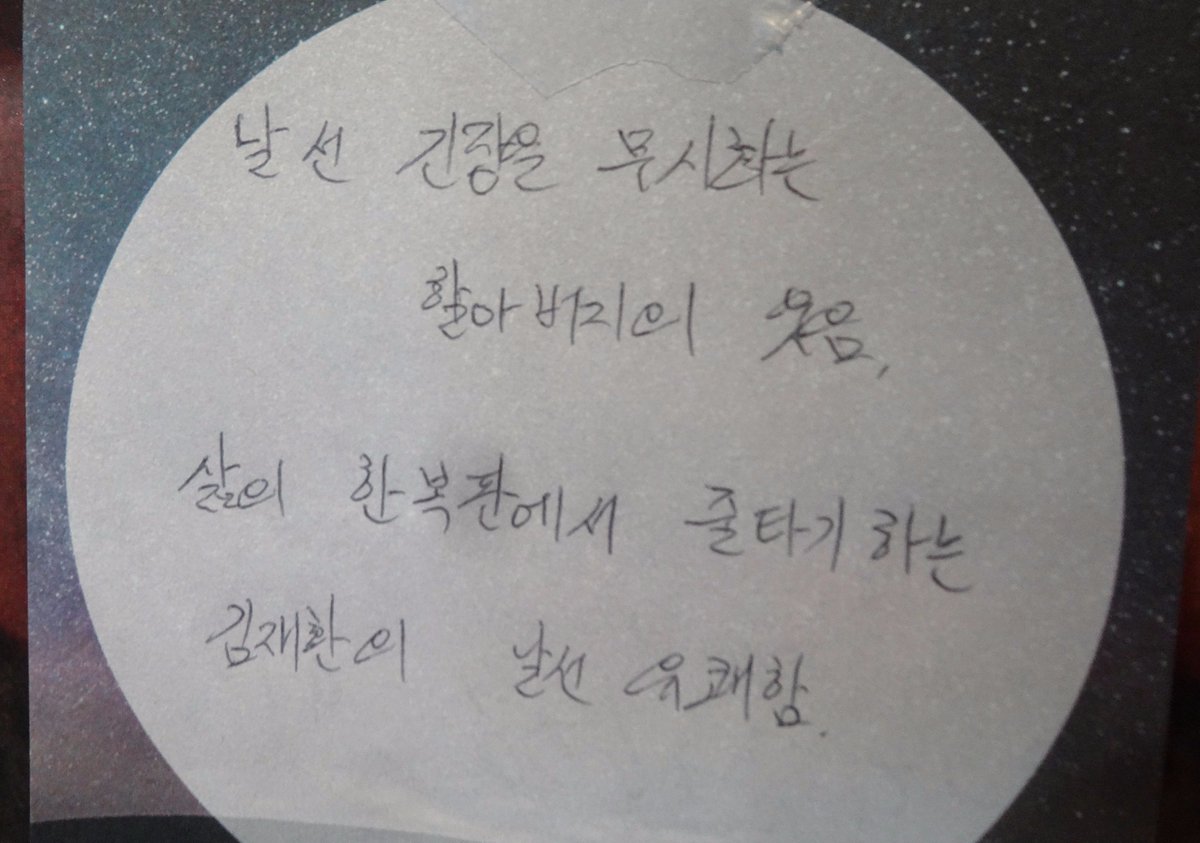 날선 긴장을 무시하는
할아버지의 웃음,
삶의 한복판에서 줄타기하는
김재환의 날선 유쾌함.